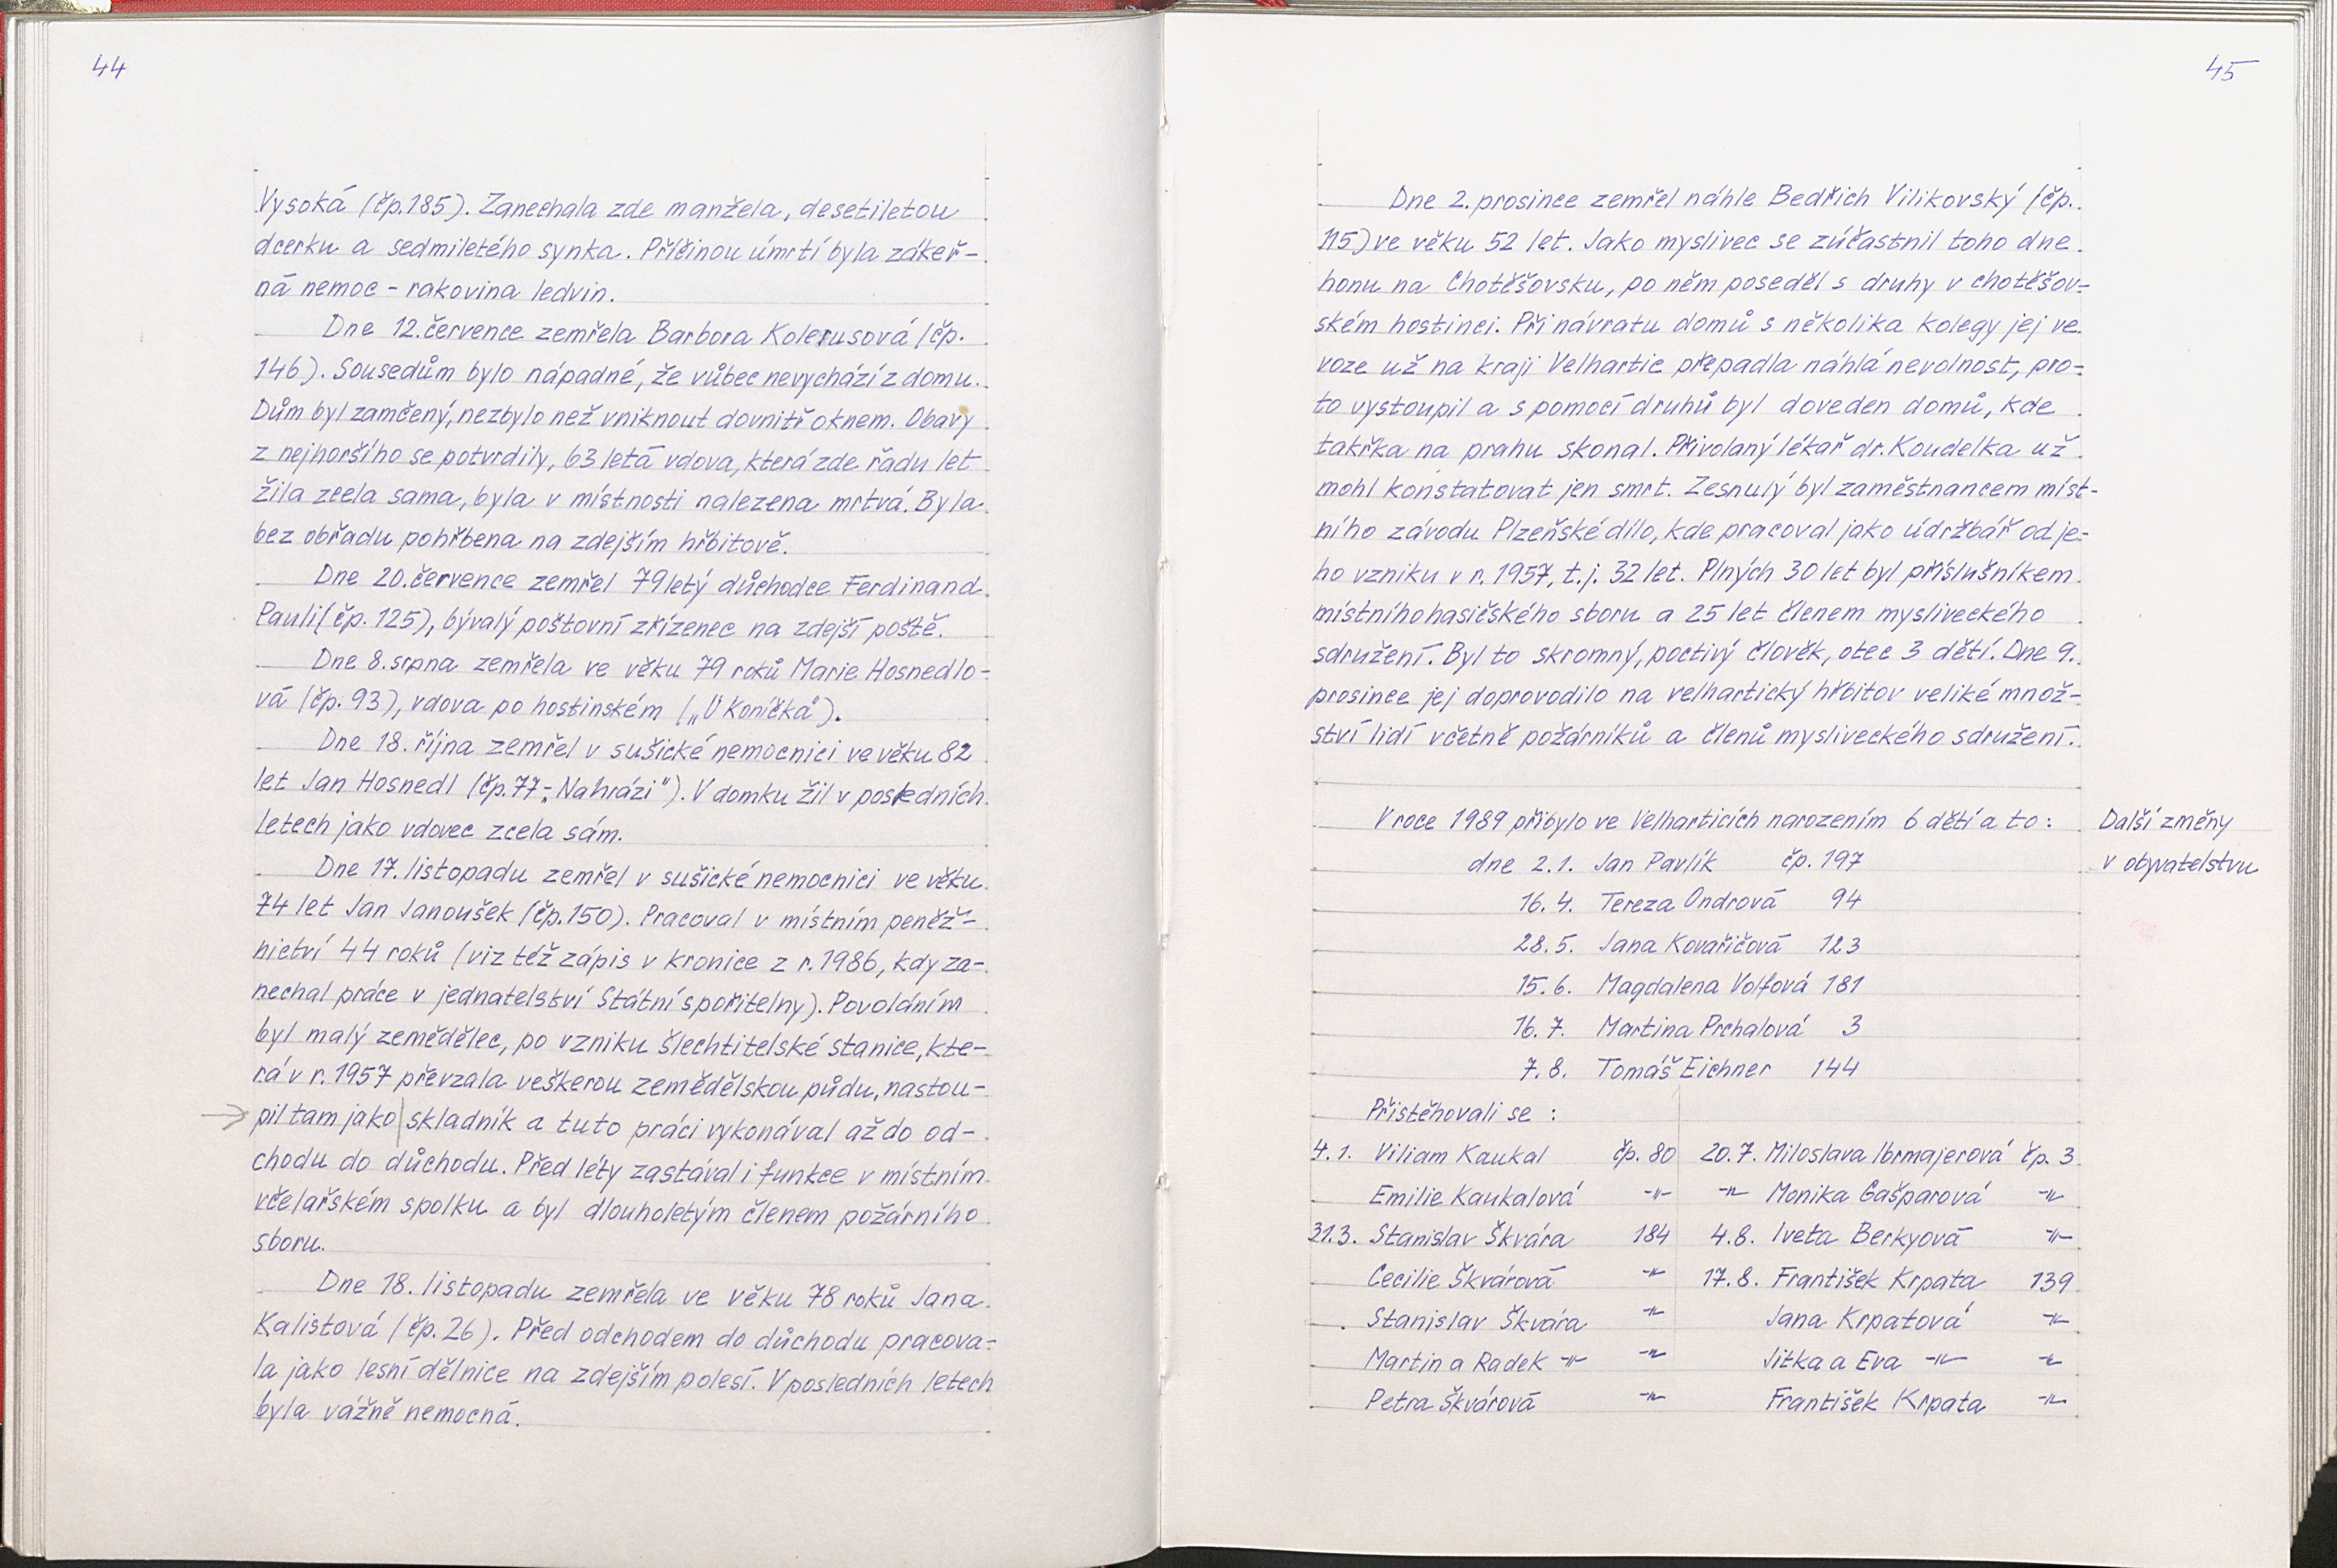 44
Vysoká (čp.185). Zanechala zde manžela, desetiletou
dcerku a sedmiletého synka. Příčinou úmrtí byla zákeř-
ná nemoc - rakovina ledvin.
Dne 12.července zemřela Barbora Kolerusová (čp.
146). Sousedům bylo nápadné, že vůbec nevychází z domu.
Dům byl zamčený, nezbylo než vniknout dovnitř oknem. Obavy
z nejhoršího se potvrdily, 63 letá vdova, která zde řadu let
žila zcela sama, byla v místnosti nalezena mrtvá. Byla
bez obřadu pohřbena na zdejším hřbitově.
Dne 20.července zemřel 79letý důchodce Ferdinand
Pauli (čp. 125), bývalý poštovní zřízenec na zdejší poště.
Dne 8.srpna zemřela ve věku 79 roků Marie Hosnedlo-
vá (čp. 93), vdova po hostinském („U Koníčka").
Dne 18. října zemřel v sušické nemocnici ve věku 82
let Jan Hosnedl (čp.77-„Na hrázi"). V domku žil v posledních
letech jako vdovec zcela sám.
Dne 17. listopadu zemřel v sušické nemocnici ve věku
74 let Jan Janoušek (čp.150). Pracoval v místním peněž-
nictví 44 roků (viz též zápis v kronice z r.1986, kdy za-
nechal práce v jednatelství Státní spořitelny). Povoláním
byl malý zemědělec, po vzniku šlechtitelské stanice, kte-
rá v r. 1957 převzala veškerou zemědělskou půdu, nastou-
→ pil tam jako | skladník a tuto práci vykonával až do od-
chodu do důchodu. Před léty zastával i funkce v místním
včelařském spolku a byl dlouholetým členem požárního
sboru.
Dne 18. listopadu zemřela ve věku 78 roků Jana
Kalistová (čp. 26). Před odchodem do důchodu pracova-
la jako lesní dělnice na zdejším polesí. V posledních letech
byla vážně nemocná.
45
Dne 2. prosince zemřel náhle Bedřich Vilikovský (čp.
115) ve věku 52 let. Jako myslivec se zúčastnil toho dne
honu na Chotěšovsku, po něm poseděl s druhy v chotěšov-
ském hostinci. Při návratu domů s několika kolegy jej ve
voze už na kraji Velhartic přepadla náhlá nevolnost, pro-
to vystoupil a s pomocí druhů byl doveden domů, kde
takřka na prahu skonal. Přivolaný lékař dr. Koudelka už
mohl konstatovat jen smrt. Zesnulý byl zaměstnancem míst-
ního závodu Plzeňské dílo, kde pracoval jako údržbář od je-
ho vzniku v r. 1957, t.j. 32 let. Plných 30 let byl příslušníkem
místního hasičského sboru a 25 let členem mysliveckého
sdružení. Byl to skromný, poctivý člověk, otec 3 dětí. Dne 9.
prosince jej doprovodilo na velhartický hřbitov veliké množ-
ství lidí včetně požárníků a členů mysliveckého sdružení.
V roce 1989 přibylo ve Velharticích narozením 6 dětí a to: Další změny
v obyvatelstvu
dne 2.1. Jan Pavlík čp. 197
16. 4. Tereza Ondrová 94
28. 5. Jana Kovaříčová 123
15. 6. Magdalena Volfová 181
16. 7. Martina Prchalová 3
7. 8. Tomáš Eichner 144
Přistěhovali se :
4.1. Viliam Kaukal čp. 80 20.7. Miloslava Ibrmajerová čp. 3
Emilie Kaukalová -"- -"- Monika Gašparová -"-
31.3. Stanislav Škvára 184 4.8. Iveta Berkyová -"-
Cecilie Škvárová -"- 17.8. František Krpata 139
Stanislav Škvára -"- Jana Krpatová -"-
Martin a Radek -"- -"- Jitka a Eva -"- -"-
Petra Škvárová -"- František Krpata -"-